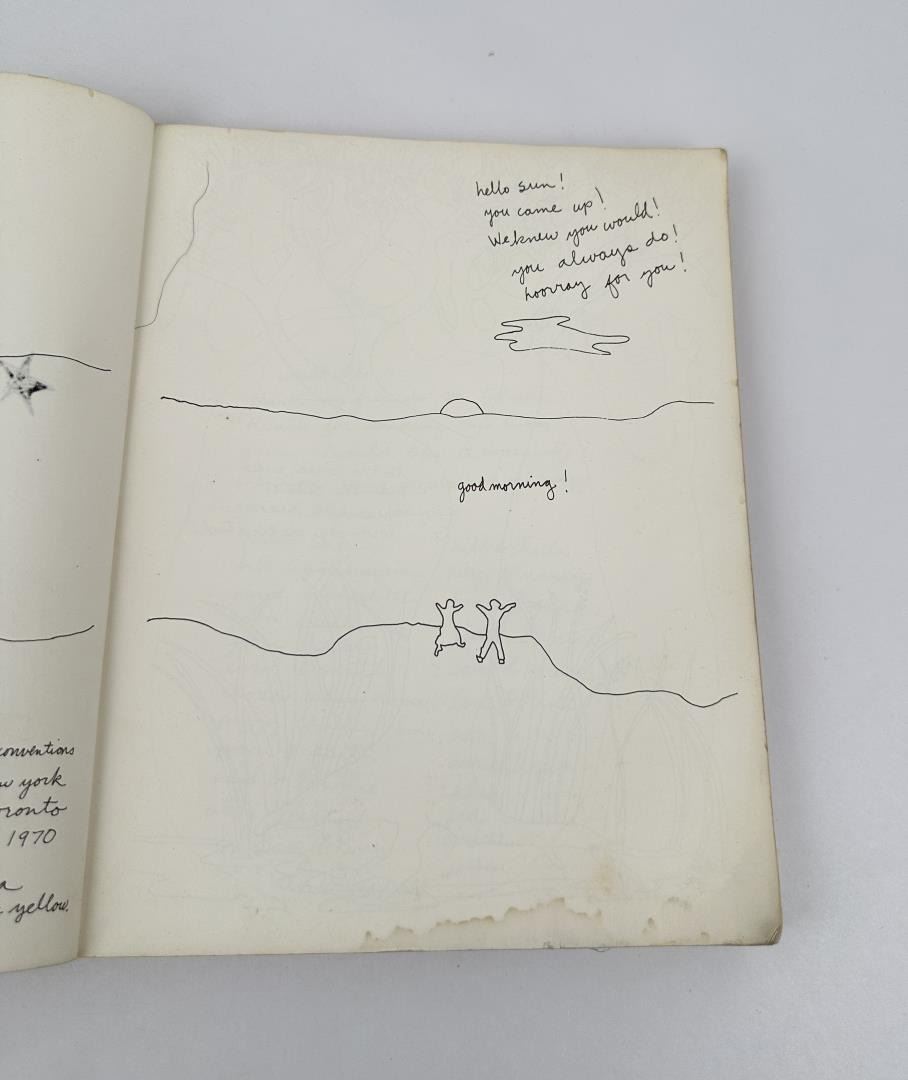 conventions
york
1970
yellow.
hello sun!
you came up!
We knew you would!
you always do!
hooray for you!
good morning!